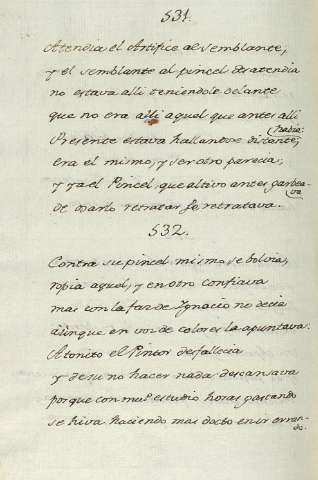 531.
Atendia el Artifice al semblante,
y el semblante al pincel desatendia
no estava alli teniendole delante
que no era alli aquel que antes alli
havia:
Presente estava hallandose distante,
era el mismo, y ser otro parecia,
y ya el Pincel, que altivo antes garbea-
va
de osarlo retratar se retratava.
532.
Contra su pincel mismo se bolvia,
ropia aquel, y en otro confiava
mas con la faz de Ignacio no decia
aunque en vez de colores la apuntava.
Atonito el Pintor desfallecia
y de su no hacer nada descansava
porque con mu.º estudio horas gastando
se hiva haciendo mas docto en ir erran-
do.